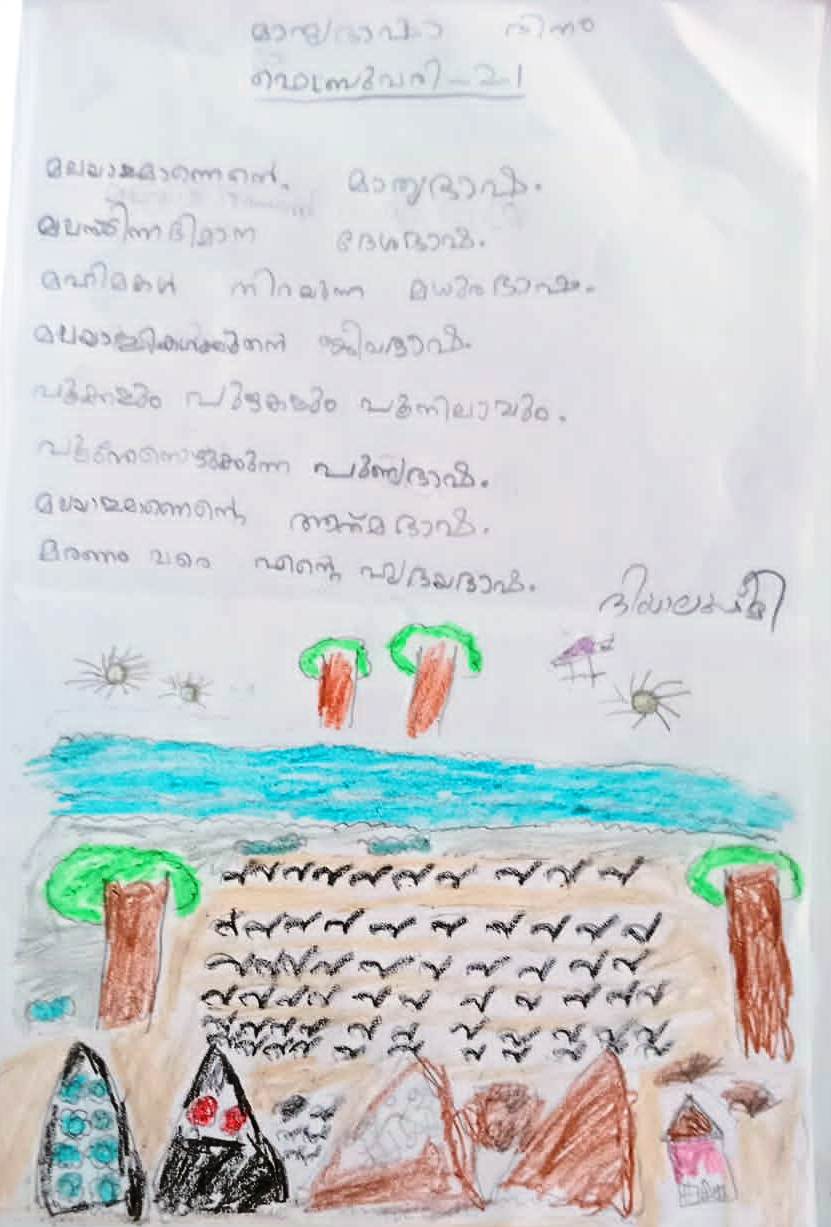 മാതൃഭാഷാ ദിനം
ഫെബ്രുവരി - 21
മലയാളമാണെന്റെ. മാതൃഭാഷ.
മലനാടിന്നഭിമാന ദേശഭാഷ.
മഹിമകൾ നിറയുന്ന മധുരഭാഷ.
മലയാളികൾക്കെന്നും ജീവഭാഷ.
പൂക്കളും പുഴകളും പൂനിലാവും.
പൂത്തൊരുങ്ങുന്ന പുണ്യഭാഷ.
മലയാളമാണെന്റെ ആത്മഭാഷ.
മരണം വരെ എന്റെ ഹൃദയഭാഷ.
ദിയാലക്ഷ്മി